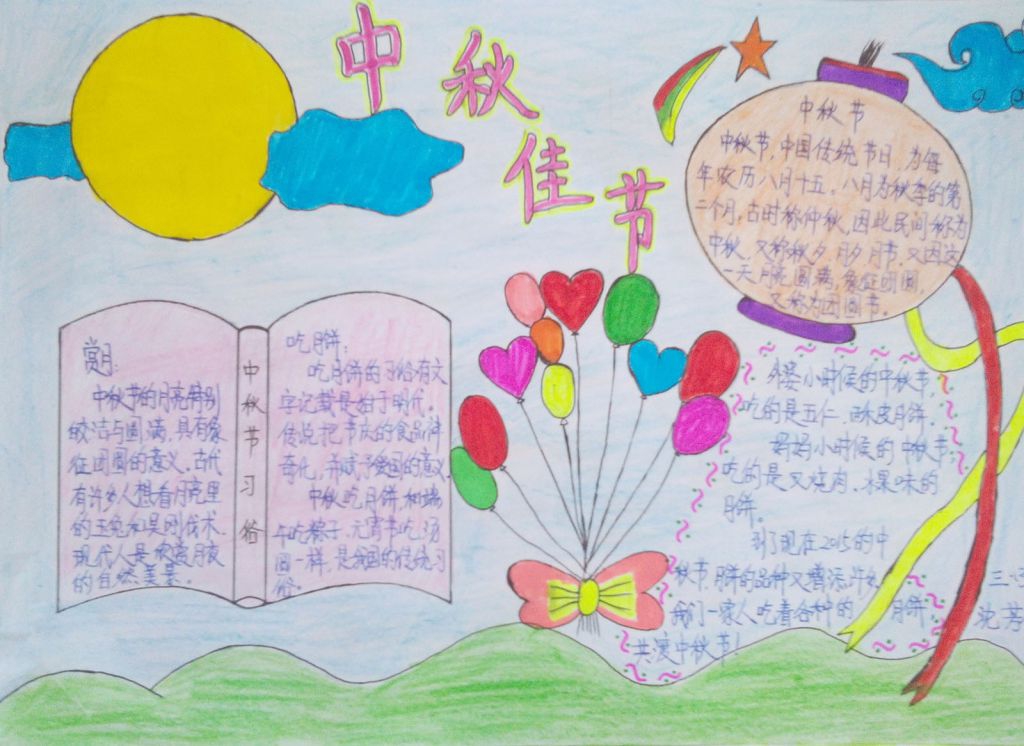 中秋佳节
中秋节
中秋节,中国传统节日,为每
年农历八月十五。八月为秋季的第
二个月,古时称仲秋,因此民间称为
中秋,又称秋夕,月夕,月节,又因这
一天月亮圆满,象征团圆,
又称为团圆节。
赏月:
中秋节的月亮特别
皎洁与圆满,具有象
征团圆的意义。古代
有许多人想看月亮里
的玉兔和吴刚伐木.
现代人是欣赏月夜
的自然美景。
中秋节习俗
吃月饼:
吃月饼的习俗有文
字记载是始于明代.
传说把节庆的食品祥
奇化,并赋予爱国的意义
中秋吃月饼,和端
午吃粽子.元宵节吃汤
圆一样,是我国的传统习
俗。
外婆小时候的中秋节,
吃的是五仁.酥皮月饼.
妈妈小时候的中秋节,
吃的是叉烧肉.水果味的
月饼。
到了现在2015的中
秋节.月饼的品种又增添许多
我们一家人吃着各种的 月饼
共渡中秋节!
沈芳